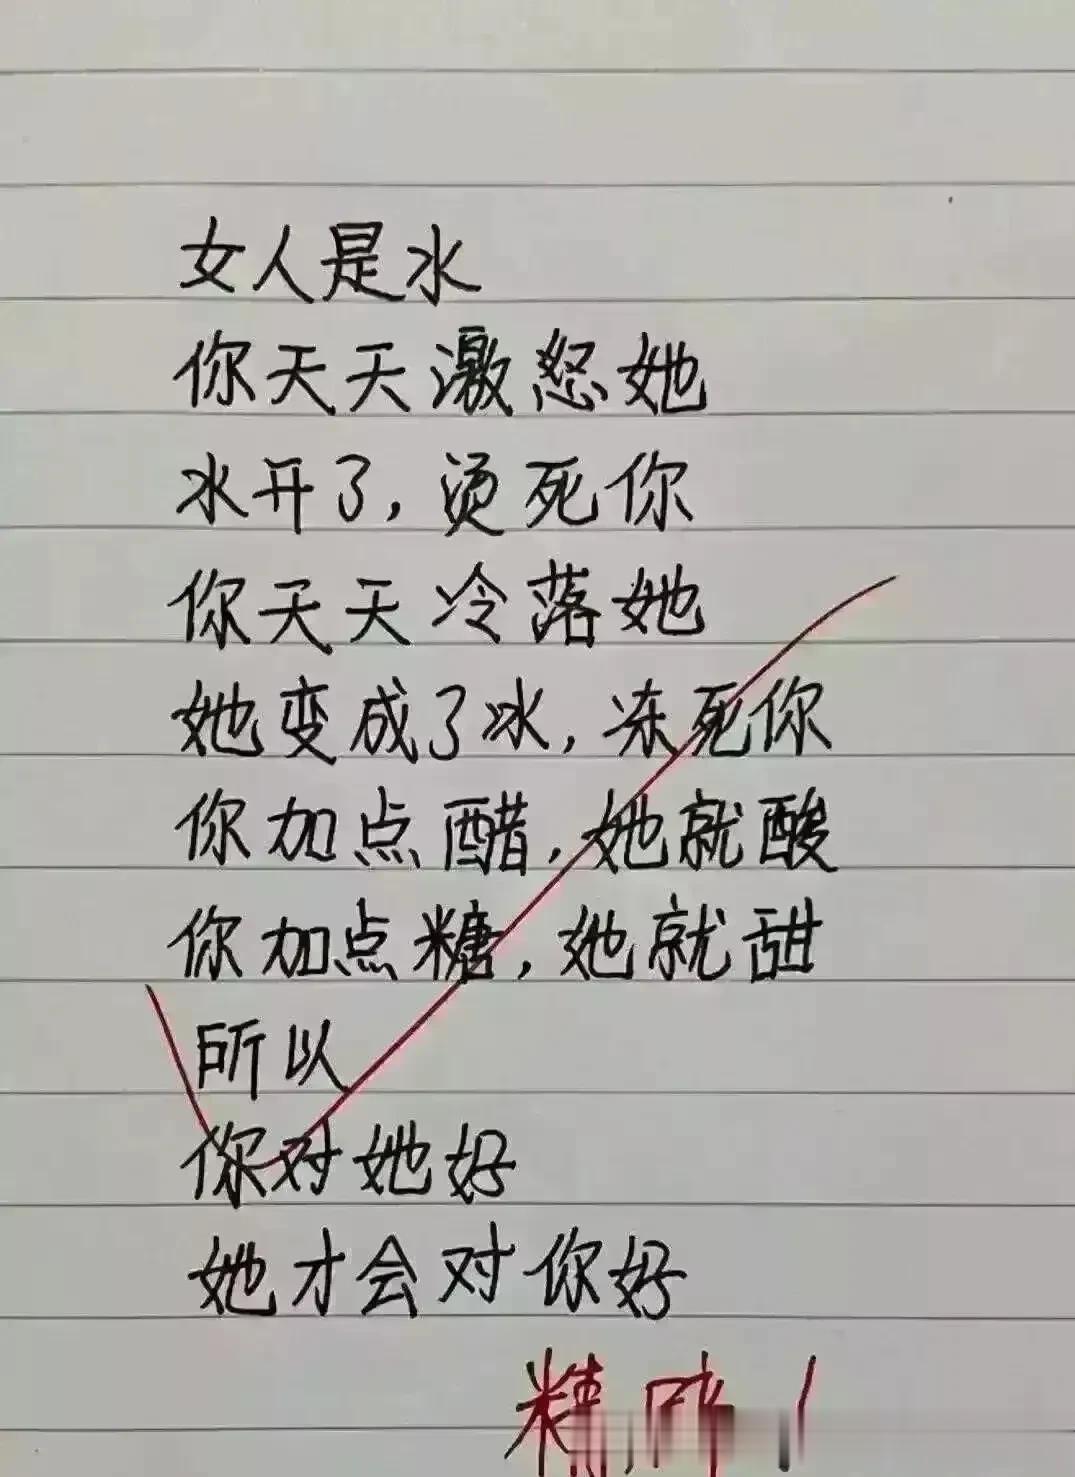 女人是水
你天天激怒她
水开了,烫死你
你天天冷落她
她变成了冰,冻死你
你加点醋,她就酸
你加点糖,她就甜
所以
你对她好
她才会对你好
精